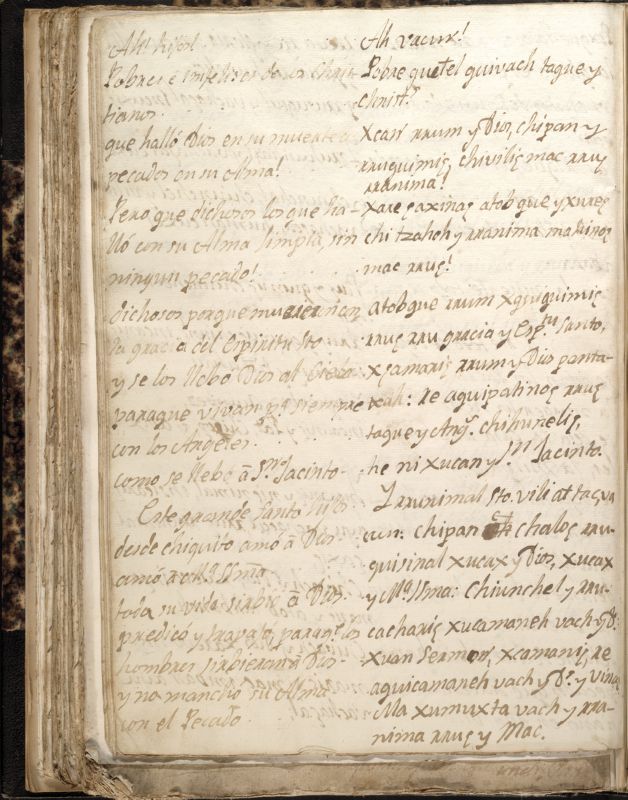 Ah! hijos!
Pobres e infelices de los Chris-
tianos.
que halló Dios en su muerte
pecados en su Alma!
Pero que dichosos los que ha-
lló con su Alma limpia, sin
ningun pecado!
dichosos porque murieron en
la gracia del Espiritu Sto.
y se los llebó Dios al Cielo
paraque vivan pa siempre
con los Angeles.
como se llebó â Sn. Jacinto.
Este grande Santo hijos
desde chiquito amó â Dios
amó â Ma. SSma.
toda su vida sirbió â Dios.
predicó y trabajó, paraq. los
hombres sirbieran â Dios
y no manchó su Alma
con el Pecado.
Ah vacux!
Pobre quetel quivach taque y
christ.
Xcan rrum y Dios, chipan y
rruquimic, chivilic mac rruc
rranima!
Xarecaxinac atob que yxurec
chi tzahoh y rranima makinoc
mac rruc!
atobque rrum xquiquimic
rruc rru gracia y Espu. Santo,
xcamaric rrum y Dios panta-
xah: re aquipatinoc rruc
taque y Ang. chihunelic,
he ni xucan y Sn. Jacinto.
Y rrunimal Sto. vili at tac, va
cun: chipan chaloc rru-
quisinal xucax y Dios, xucax
y Ma. SSma: Chiunchel y rru-
cacharic xucamaneh vach y Ds:
Xvan Sermon, xcamanic, re
aquicamaneh vach y Ds. y vinac
Ma xumuxta vach y rra-
nima rruc y Mac.